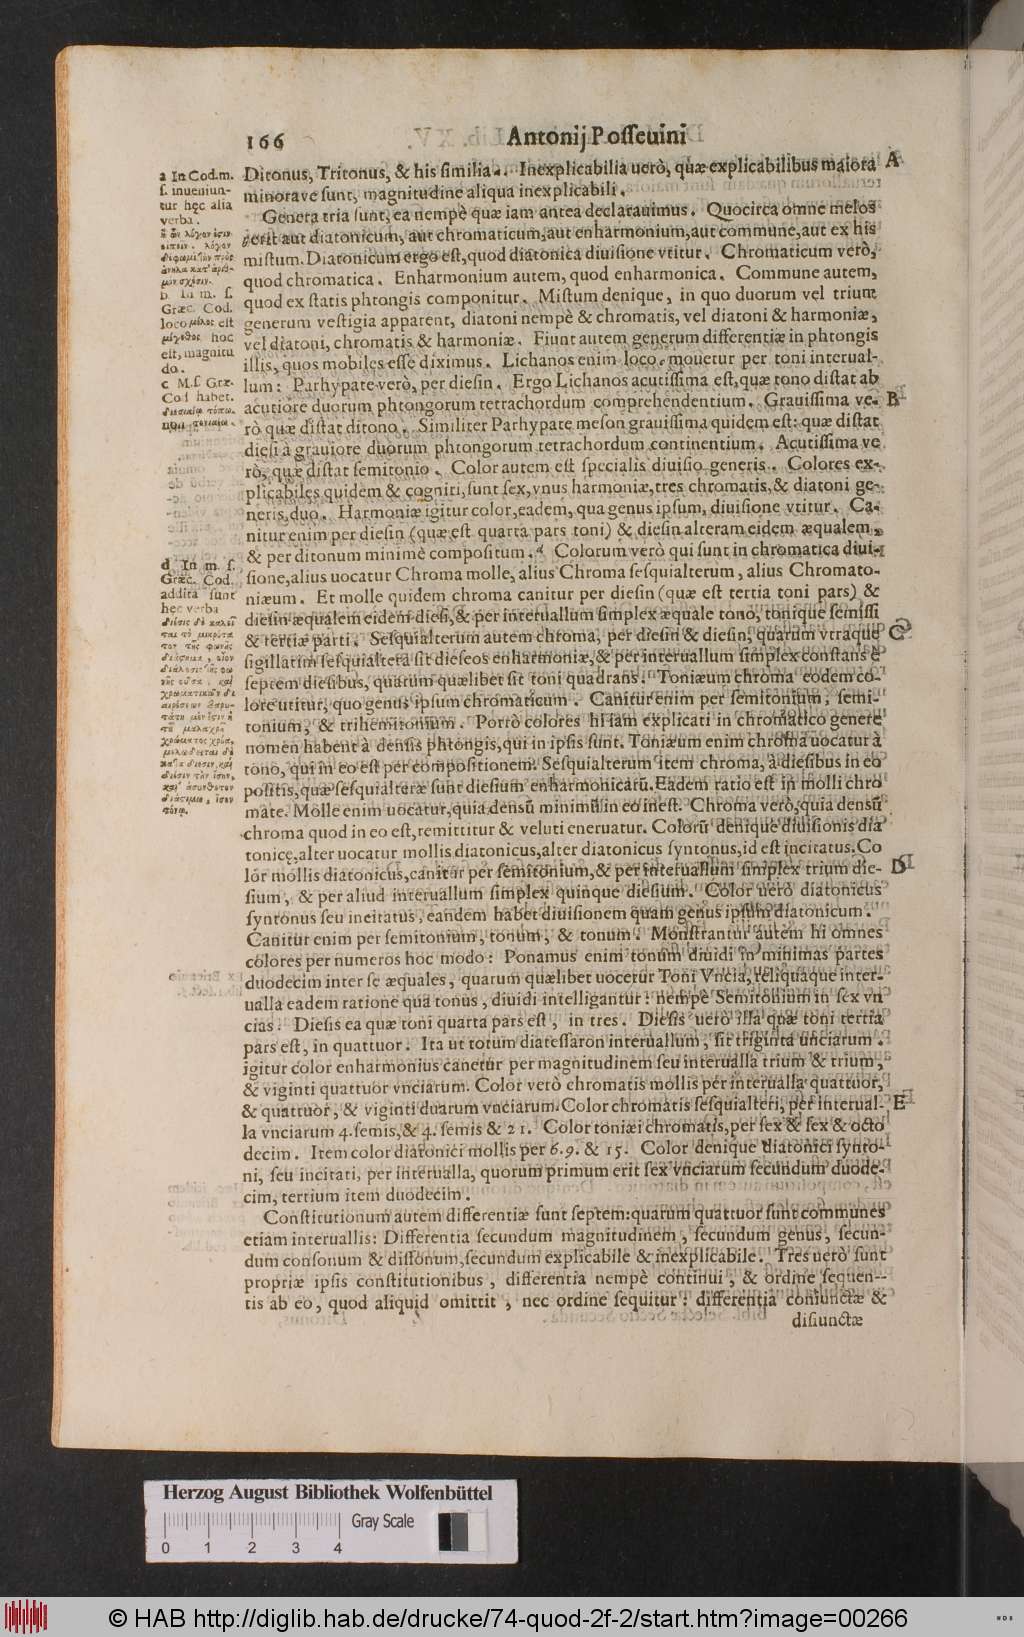 166
Antonij Posseuini
Ditonus, Tritonus, & his similia ᵃ. Inexplicabilia uerò, quæ explicabilibus maiora A
minorave sunt, magnitudine aliqua inexplicabili.
Genera tria sunt, ea nempè quæ iam antea declarauimus. Quocirca omne melos
erit aut diatonicum, aut chromaticum, aut enharmonium, aut commune, aut ex his
mistum. Diatonicum ergo est, quod diatonica diuisione vtitur. Chromaticum verò,
quod chromatica. Enharmonium autem, quod enharmonica. Commune autem,
quod ex statis phtongis componitur. Mistum denique, in quo duorum vel trium
generum vestigia apparent, diatoni nempè & chromatis, vel diatoni & harmoniæ,
vel diatoni, chromatis & harmoniæ. Fiunt autem generum differentiæ in phtongis
illis, quos mobiles esse diximus. Lichanos enim loco mouetur per toni interual-
lum: Parhypate verò, per diesin. Ergo Lichanos acutissima est, quæ tono distat ab
acutiore duorum phtongorum tetrachordum comprehendentium. Grauissima ve- B
rò quæ distat ditono. Similiter Parhypate meson grauissima quidem est: quæ distat
diesi à grauiore duorum phtongorum tetrachordum continentium. Acutissima ve
rò, quæ distat semitonio. Color autem est specialis diuisio generis. Colores ex-
plicabiles quidem & cogniti, sunt sex, vnus harmoniæ, tres chromatis, & diatoni ge-
neris, duo. Harmoniæ igitur color, eadem, qua genus ipsum, diuisione vtitur. Ca-
nitur enim per diesin (quæ est quarta pars toni) & diesin alteram eidem æqualem,
& per ditonum minimè compositum. ᵈ Colorum verò qui sunt in chromatica diui-
sione, alius uocatur Chroma molle, alius Chroma sesquialterum, alius Chromato-
niæum. Et molle quidem chroma canitur per diesin (quæ est tertia toni pars) &
diesin æqualem eidem diesi, & per interuallum simplex æquale tono, tonique semissi
& tertiæ parti. Sesquialterum autem chroma, per diesin & diesin, quarum vtraque C
sigillatim sesquialtera sit dieseos enharmoniæ, & per interuallum simplex constans è
septem diesibus, quarum quælibet sit toni quadrans. Toniæum chroma eodem co-
lore utitur, quo genus ipsum chromaticum. Canitur enim per semitonium, semi-
tonium, & trihemitonium. Porrò colores hi iam explicati in chromatico genere
nomen habent à densis phtongis, qui in ipsis sunt. Toniæum enim chroma uocatur à
tono, qui in eo est per compositionem. Sesquialterum item chroma, à diesibus in eo
positis, quæ sesquialteræ sunt diesium enharmonicarū. Eadem ratio est in molli chro
mate. Molle enim uocatur, quia densū minimū in eo inest. Chroma verò, quia densū
chroma quod in eo est, remittitur & veluti eneruatur. Colorū denique diuisionis dia
tonicę, alter uocatur mollis diatonicus, alter diatonicus syntonus, id est incitatus. Co
lor mollis diatonicus, canitur per semitonium, & per interuallum simplex trium die- D
sium, & per aliud interuallum simplex quinque diesium. Color uerò diatonicus
syntonus seu incitatus, eandem habet diuisionem quam genus ipsum diatonicum.
Canitur enim per semitonium, tonum, & tonum. Monstrantur autem hi omnes
colores per numeros hoc modo: Ponamus enim tonum diuidi in minimas partes
duodecim inter se æquales, quarum quælibet uocetur Toni Vncia, reliquaque inter-
ualla eadem ratione qua tonus, diuidi intelligantur: nempè Semitonium in sex vn
cias. Diesis ea quæ toni quarta pars est, in tres. Diesis uerò illa quæ toni tertia
pars est, in quattuor. Ita ut totum diatessaron interuallum, sit triginta unciarum.
igitur color enharmonius canetur per magnitudinem seu interualla trium & trium,
& viginti quattuor vnciarum. Color verò chromatis mollis per interualla quattuor,
& quattuor, & viginti duarum vnciarum. Color chromatis sesquialteri, per interual- E
la vnciarum 4. semis, & 4. semis & 21. Color toniæi chromatis, per sex & sex & octo
decim. Item color diatonici mollis per 6. 9. & 15. Color denique diatonici synto-
ni, seu incitati, per interualla, quorum primum erit sex vnciarum secundum duode-
cim, tertium item duodecim.
Constitutionum autem differentiæ sunt septem: quarum quattuor sunt communes
etiam interuallis: Differentia secundum magnitudinem, secundum genus, secun-
dum consonum & dissonum, secundum explicabile & inexplicabile. Tres uerò sunt
propriæ ipsis constitutionibus, differentia nempè continui, & ordine sequen-
tis ab eo, quod aliquid omittit, nec ordine sequitur: differentia coniunctæ &
disiunctæ
a In Cod. m.
s. inueniun-
tur hęc alia
verba.
b. In m. s.
Græc. Cod.
loco μέλος est
μέγεθος hoc
est, magnitu
do.
c M. s Græ.
Cod habet.
d In m. s.
Græc. Cod.
addita sunt
hęc verba
Herzog August Bibliothek Wolfenbüttel
Gray Scale
0 1 2 3 4
© HAB http://diglib.hab.de/drucke/74-quod-2f-2/start.htm?image=00266